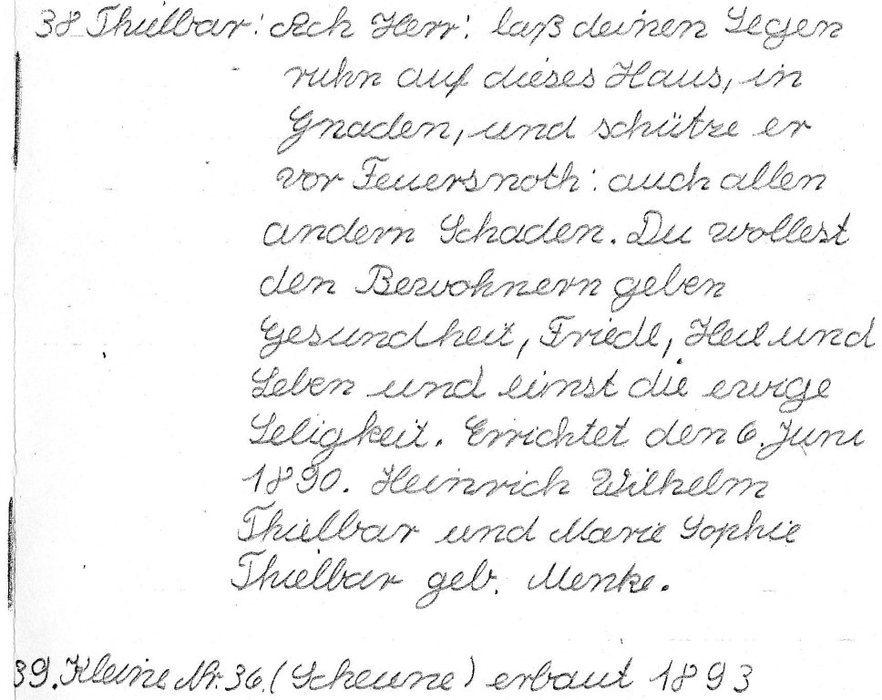 38 Thielbar: Ach Herr: laß deinen Segen
ruhn auf dieses Haus, in
Gnaden, und schütze er
vor Feuersnoth: auch allen
andern Schaden. Du wollest
den Bewohnern geben
Gesundheit, Friede, Heil und
Leben und einst die ewige
Seligkeit. Errichtet den 6. Juni
1890. Heinrich Wilhelm
Thielbar und Marie Sophie
Thielbar geb. Menke.
39. Kleine Nr. 36. (Scheune) erbaut 1893